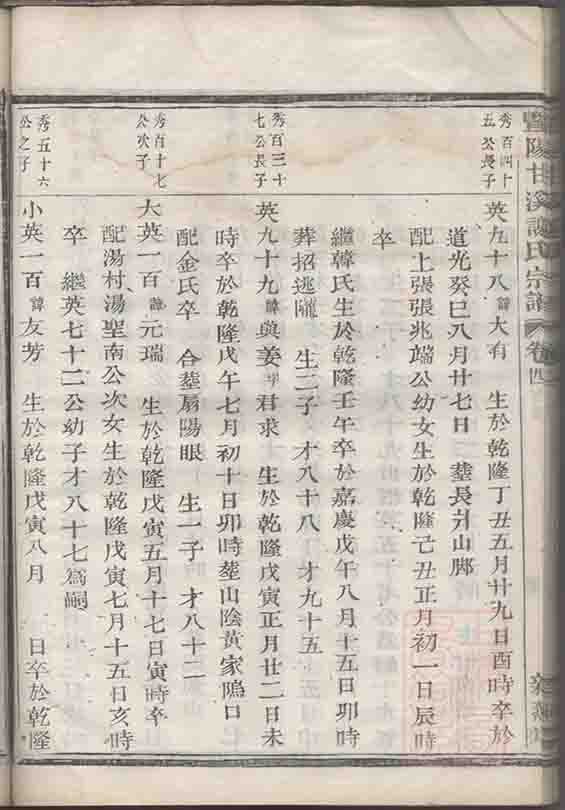 暨陽甘溪謝氏宗譜 卷四
秀百四十
五公長子
英九十八諱大有 生於乾隆丁丑五月廿九日酉時卒於
道光癸巳八月廿七日 塟長升山脚
配上張張兆端公幼女生於乾隆己丑正月初一日辰時
卒
繼韓氏生於乾隆壬午卒於嘉慶戊午八月十五日卯時
葬招逃隴 生二子 才八十八 才九十五
秀百三十
七公長子
英九十九諱與姜字君求 生於乾隆戊寅正月廿二日未
時卒於乾隆戊午七月初十日卯時塟山陰黃家隖口
配金氏卒 合塟扇陽眼 生一子 才八十二
秀百十七
公次子
大英一百諱元瑞 生於乾隆戊寅五月十七日寅時卒
配湯村湯聖南公次女生於乾隆戊寅七月十五日亥時
卒 繼英七十二公幼子才八十七為嗣
秀五十六
公之子
小英一百諱友芳 生於乾隆戊寅八月 日卒於乾隆